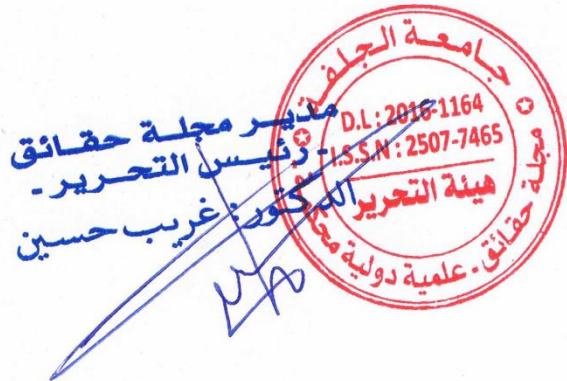 مديـر مجلـة حقـائق
- رئيس التحريـر -
الدكتور: غريب حسين
جامعـة الجلفـة
D.L : 2016-1164
I.S.S.N : 2507-7465
هيئة التحرير
مجلة حقائق - علمية دولية